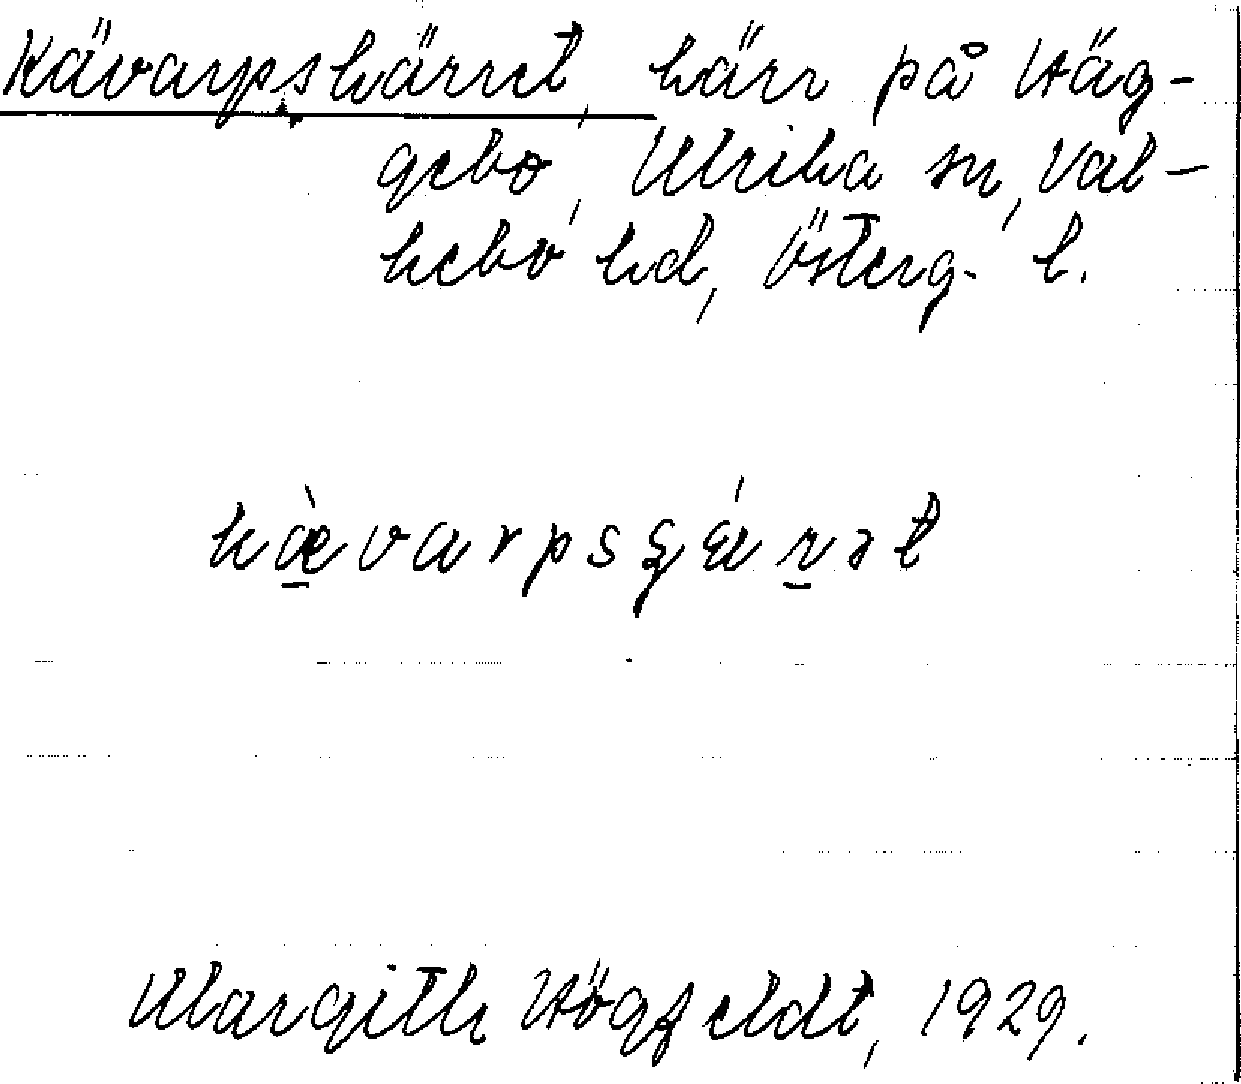 Kävarpskärret, kärr på Häg-
gebo, Ulrika sn, Val-
kebo hd, Österg. l.
kæ̠̀varpsʒá̈r̠ət
Margith Högfeldt, 1929.